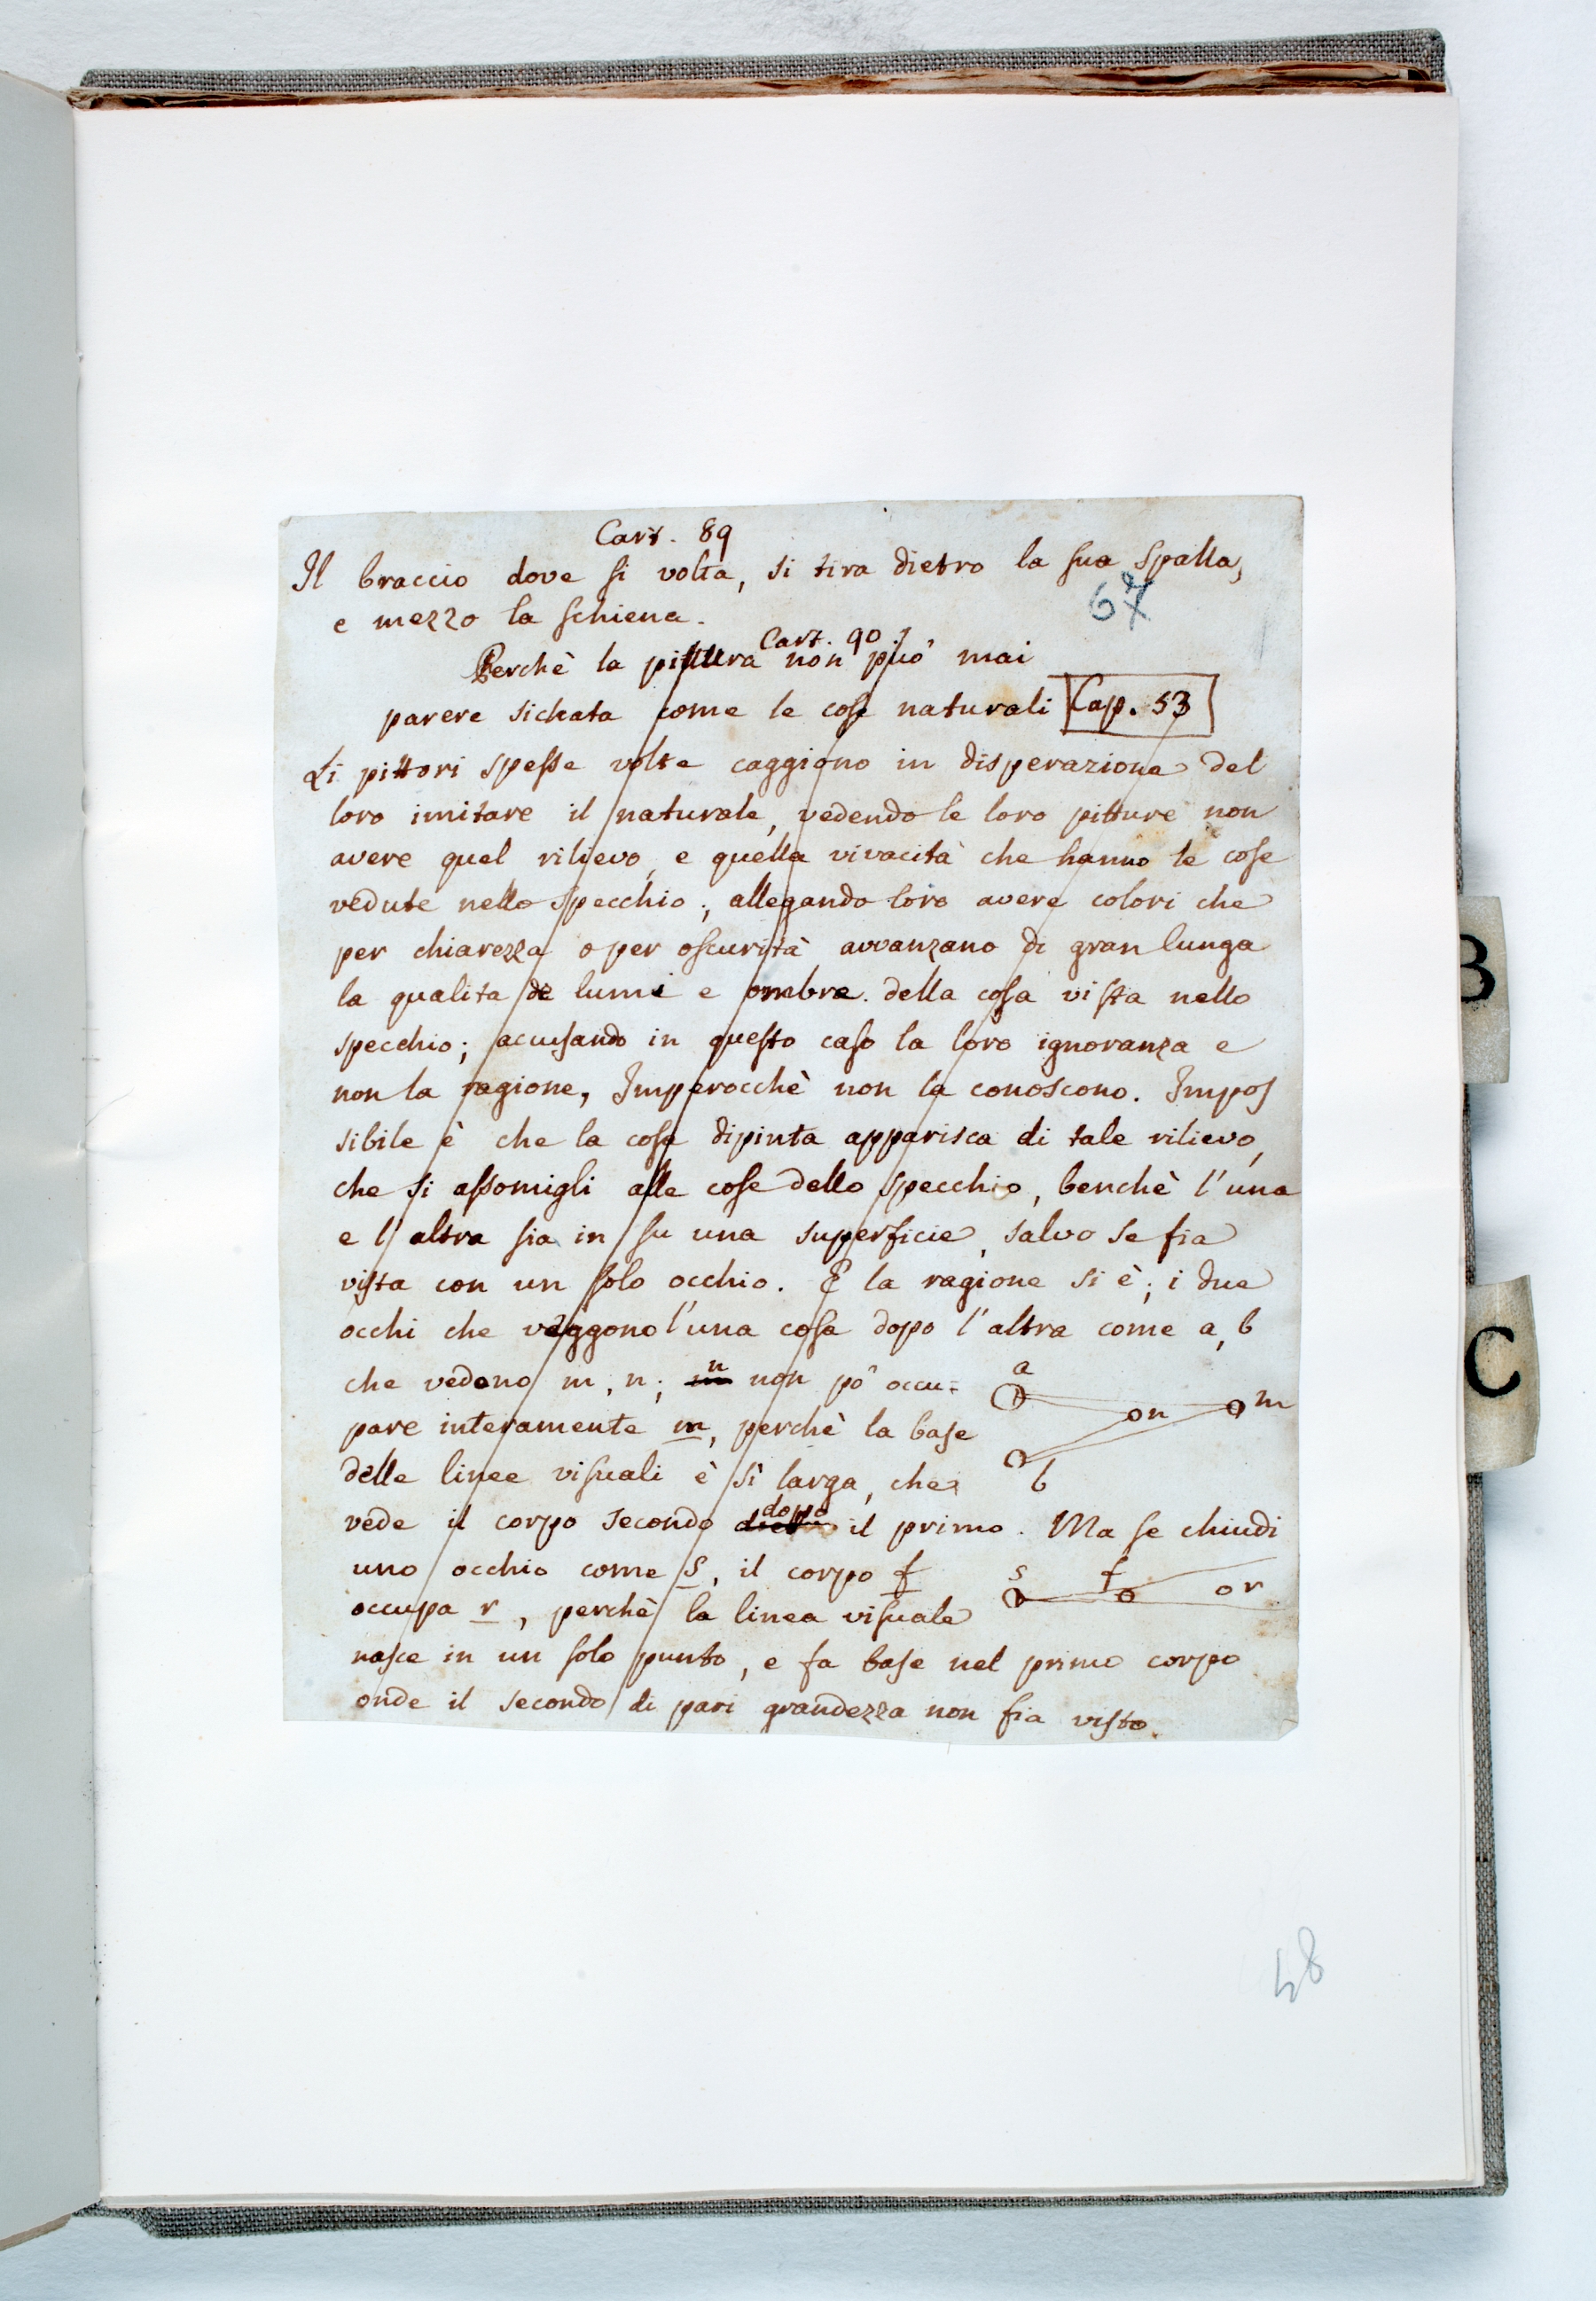 Cart. 89
Il braccio dove si volta, si tira dietro la sua spalla,
e mezzo la schiena.
67
Cart. 90.
Perchè la pittura non può mai
parere sichata come le cose naturali Cap. 53
Li pittori spesse volte caggiono in disperazione del
loro imitare il naturale, vedendo le loro pitture non
avere quel rilievo, e quella vivacità che hanno le cose
vedute nello specchio; allegando loro avere colori che
per chiarezza o per oscurità avvanzano di gran lunga
la qualita de lumi e ombre della cosa vista nello
specchio; accusando in questo caso la loro ignoranza e
non la ragione, Imperocchè non la conoscono. Impos
sibile è che la cosa dipinta apparisca di tale rilievo,
che si assomigli alle cose dello specchio, benchè l'una
e l'altra sia in su una superficie, salvo se fia
vista con un solo occhio. E la ragione si è; i due
occhi che veggono l'una cosa dopo l'altra come a, b
che vedono m, n; n non pò occu-
pare interamente m, perchè la base
delle linee visuali è sì larga, che
a
n
m
b
vede il corpo secondo dopo il primo. Ma se chiudi
uno occhio come S, il corpo f
occupa r, perchè la linea visuale
s
f
r
nasce in un solo punto, e fa base nel primo corpo
onde il secondo di pari grandezza non fia visto.
48
B
C